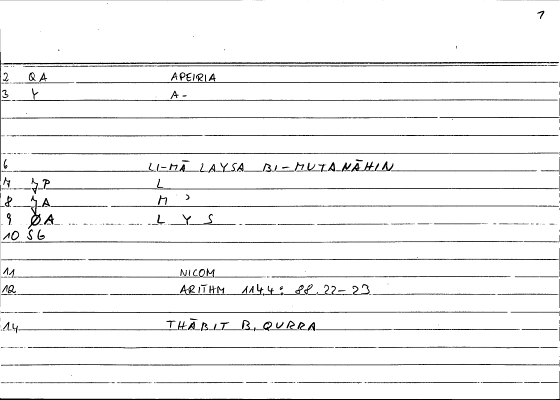 1
2 QA APEIRIA
3 Y A-
6 LI-MĀ LAYSA BI-MUTANĀHIN
7 ȜP L
8 ȜA M ʾ
9 ØA L Y S
10 SG
11 NICOM
12 ARITHM 114,4: 88.22-23
14 THĀBIT B. QURRA